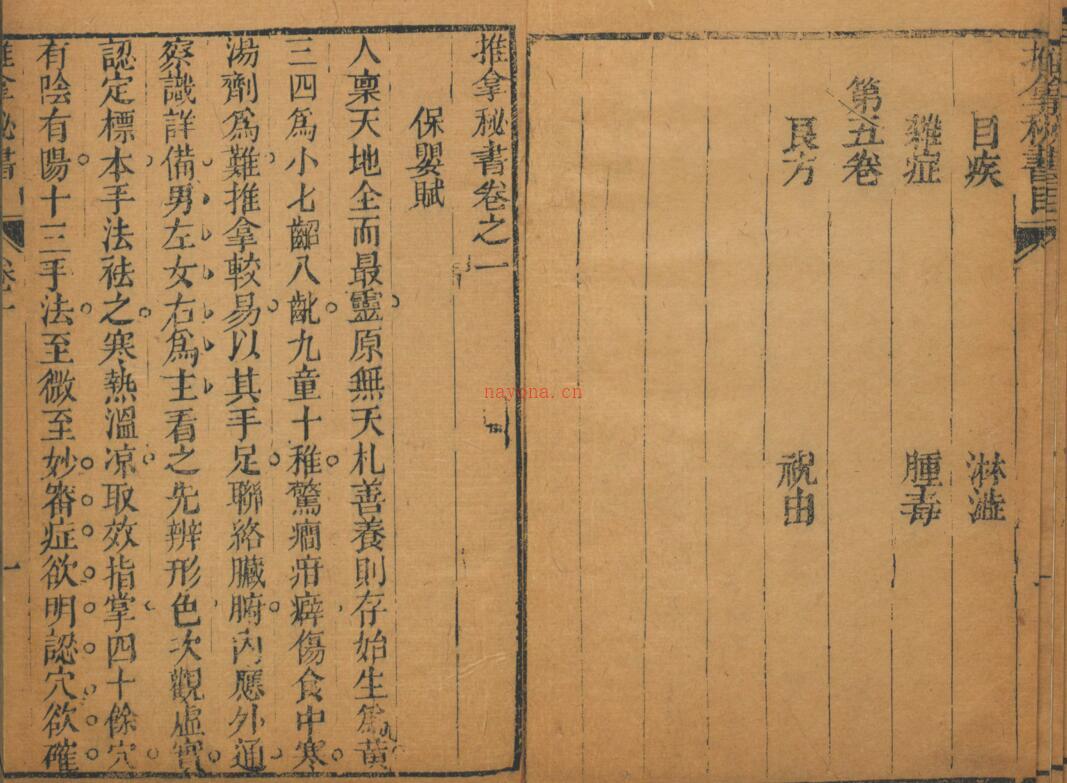 推拿秘書目
目疾 淋澁
雜症 腫毒
第五卷
良方 祝由
推拿秘書卷之一
保嬰賦
人稟天地全而最靈原無天札善養則存始生爲黃
三四爲小七齠八齔九童十稚驚癎疳癖傷食中寒
湯劑爲難推拿較易以其手足聯絡臟腑内應外通
察識詳備男左女右爲主看之先辨形色次觀虛實
認定標本手法祛之寒熱溫凉取效指掌四十餘穴
有陰有陽十三手法至微至妙審症欲明認穴欲確
推拿秘書 卷一 一
nayona.cn